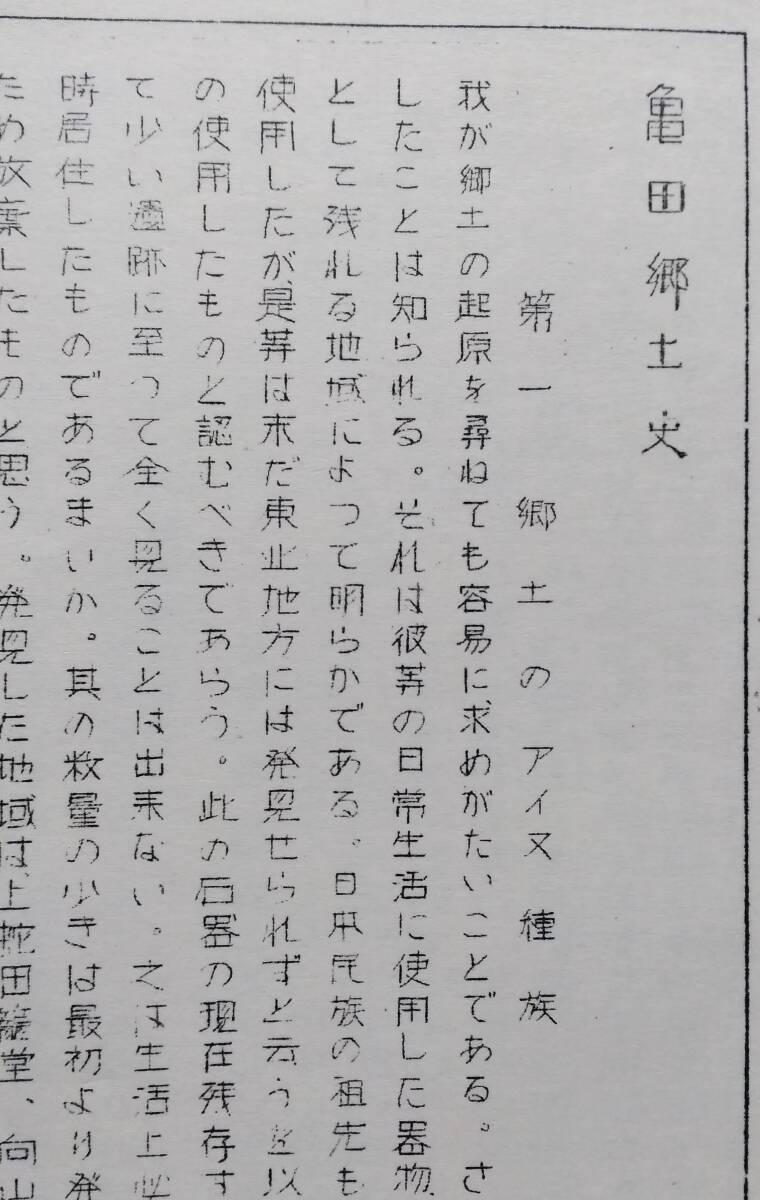 亀田郷土史
第一 郷土のアイヌ種族
我が郷土の起原を尋ねても容易に求めがたいことである。さ
したことは知られる。それは彼等の日常生活に使用した器物
として残れる地域によつて明らかである。日本民族の祖先も
使用したが、是等は末だ東北地方には発見せられずと云うを以
の使用したものと認むべきであらう。此の石器の現在残存す
て少い遺跡に至つて全く見ることは出来ない。之は生活上必
時居住したものであるまいか。其の数量の少きは最初より発
ため放棄したものと思う。発見した地域は、上蛇田籠堂、向山